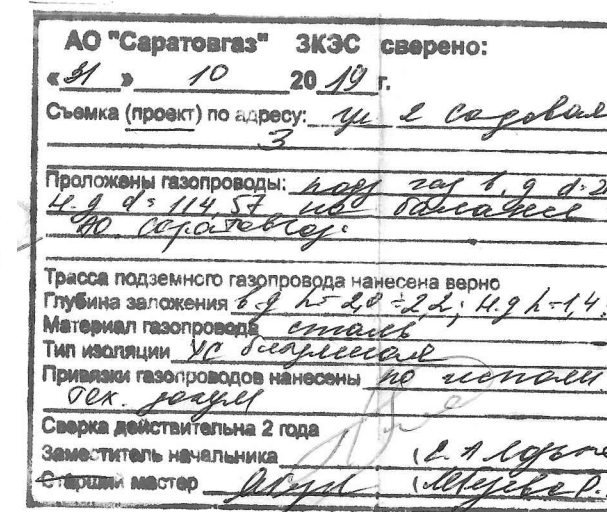 АО "Саратовгаз" ЗКЭС сверено:
«31» 10 2019 г.
Съемка (проект) по адресу: ул 2 Садовая
3
Проложены газопроводы: подз газ в.д d=2
н.д d=114,57 на балансе
АО Саратовгаз.
Трасса подземного газопровода нанесена верно
Глубина заложения в.д h=2,0÷2,2; н.д h=1,4
Материал газопровода сталь
Тип изоляции УС битумная
Привязки газопроводов нанесены по исполн
тех. докум
Сверка действительна 2 года
Заместитель начальника
Старший мастер